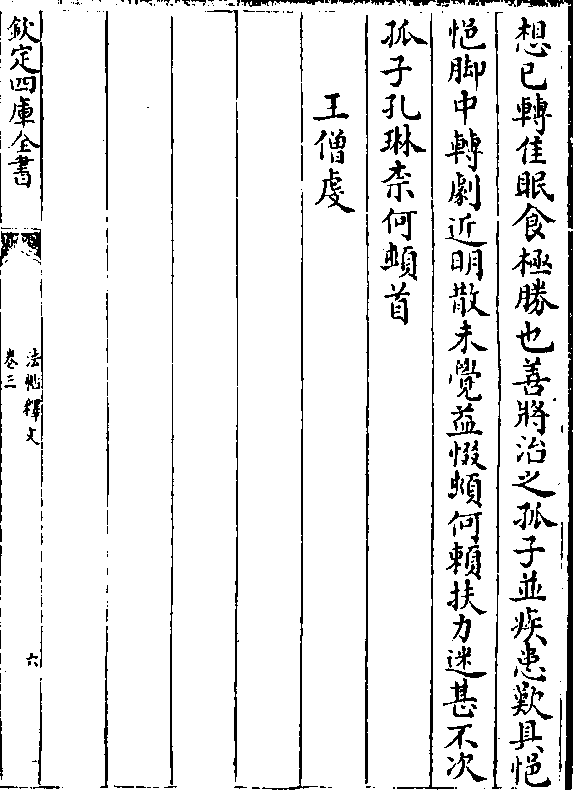 想已轉佳眠食極勝也善將治之孤子並疾患歎具悒
悒脚中轉劇近明散未覺益惙頓何賴扶力迷甚不次
孤子孔琳柰何頓首
王僧虔
欽定四庫全書
法帖釋文
卷三
六